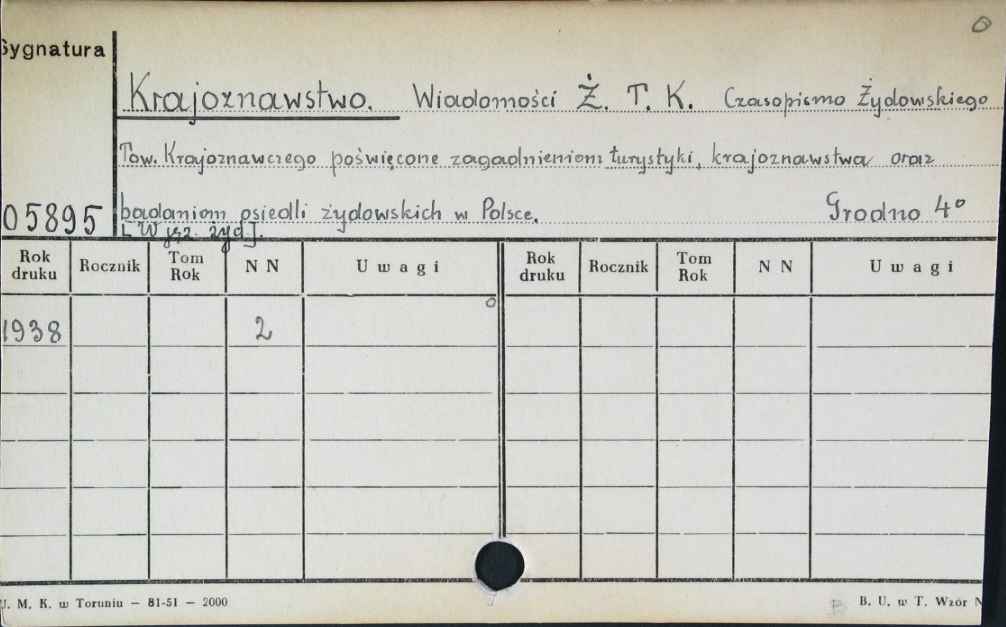 Sygnatura
Krajoznawstwo. Wiadomości Ż. T. K. Czasopismo Żydowskiego
Tow. Krajoznawczego poświęcone zagadnieniom turystyki, krajoznawstwa oraz
05895 badaniom osiedli żydowskich w Polsce. Grodno 4°
[W jęz. żyd].
Rok druku Rocznik Tom Rok N N Uwagi Rok druku Rocznik Tom Rok N N Uwagi
1938 2
U. M. K. w Toruniu — 81-51 — 2000 B. U. w T. Wzór N